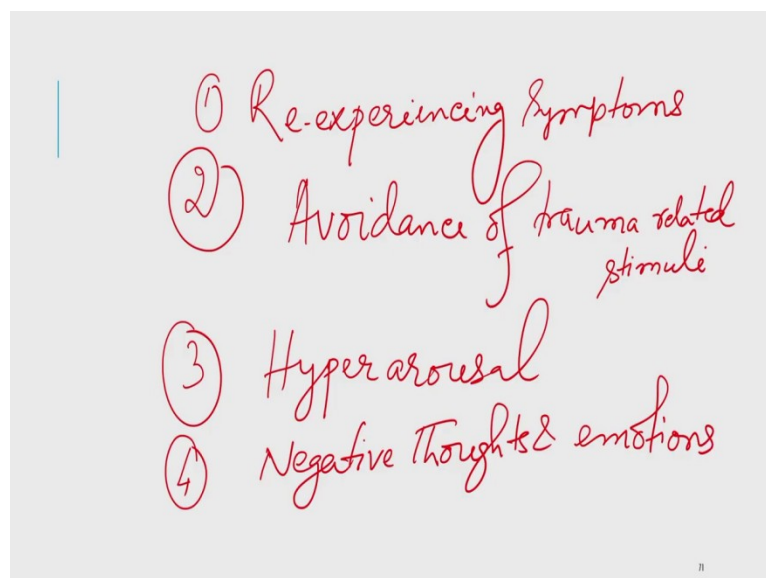 ① Re-experiencing Symptoms
② Avoidance of trauma related
stimuli
③ Hyper arousal
④ Negative Thoughts & emotions
11